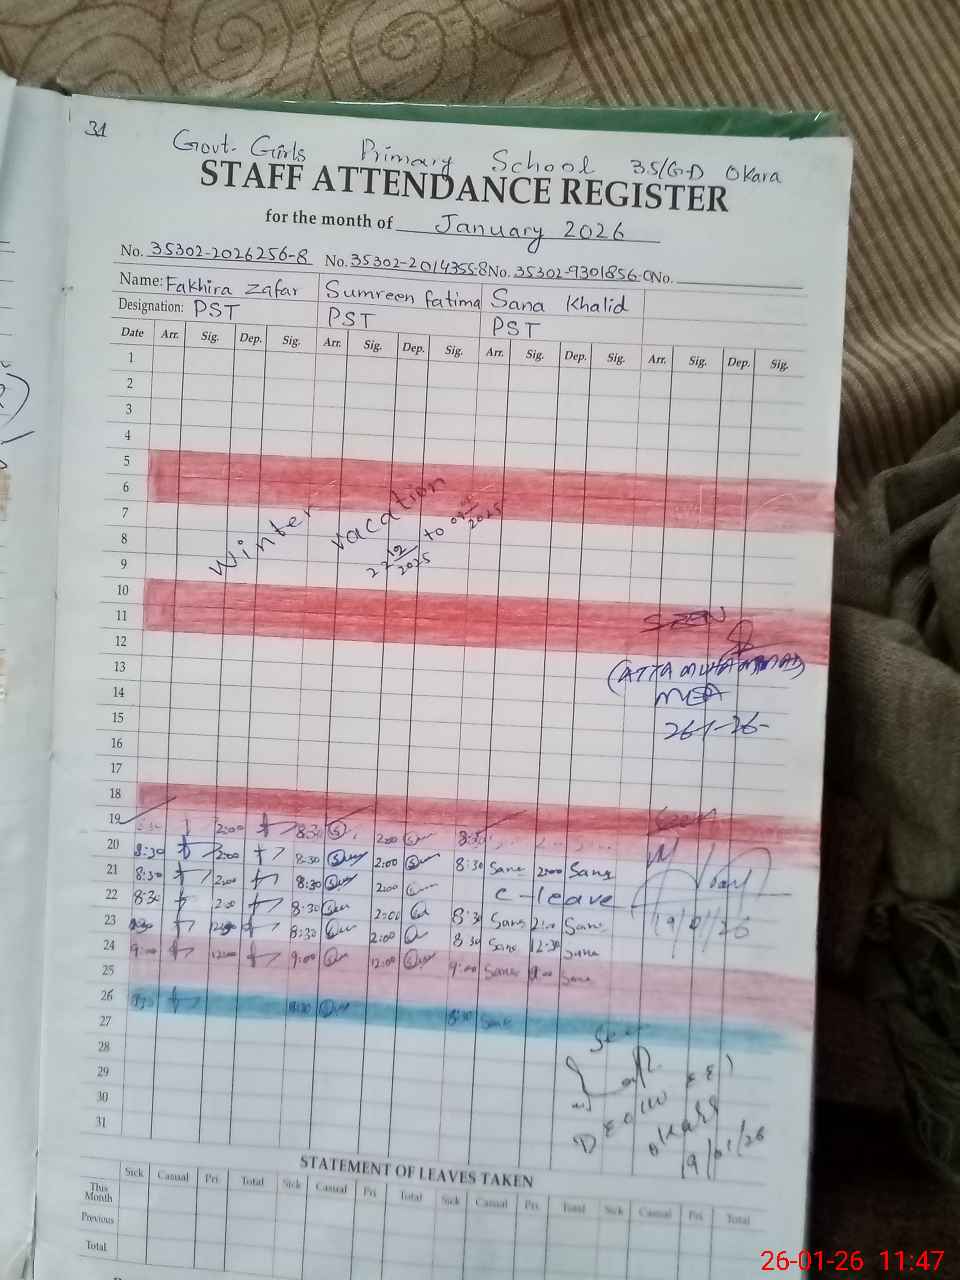 31
Govt. Girls Primary School 35/G-D Okara
STAFF ATTENDANCE REGISTER
for the month of January 2026
No. 35302-2026256-8 No. 35302-2014355-8 No. 35302-9301856-0 No.
Name: Fakhira Zafar Sumreen fatima Sana Khalid
Designation: PST PST PST
Date Arr. Sig. Dep. Sig. Arr. Sig. Dep. Sig. Arr. Sig. Dep. Sig. Arr. Sig. Dep. Sig.
1
2
3
4
5
6
7
Winter vacation
22/12/2025 to
8
9
10
11
SEEN
12
(ATTA MUHAMMAD)
13
MEA
14
26-1-26-
15
16
17
18
19 8:30 2:00 8:30 2:00 8:30
Seen
20 8:30 2:00 8:30 2:00 8:30 Sana 2:00 Sana
21 8:30 2:00 8:30 2:00 C-leave
22 8:30 2:00 8:30 2:00 8:30 Sana 2:00 Sana
19/01/26
23 8:30 8:30 2:00 8:30 Sana 12:30 Sana
24 9:00 12:00 9:00 12:00 9:00 Sana Sana
25
26 8:30 8:30 8:30 Sana
27
Seen
28
29
30
DEO (W EE)
31
Okara
19/01/26
STATEMENT OF LEAVES TAKEN
Sick Casual Pri. Total Sick Casual Pri. Total Sick Casual Pri. Total Sick Casual Pri. Total
This Month
Previous
Total
26-01-26 11:47